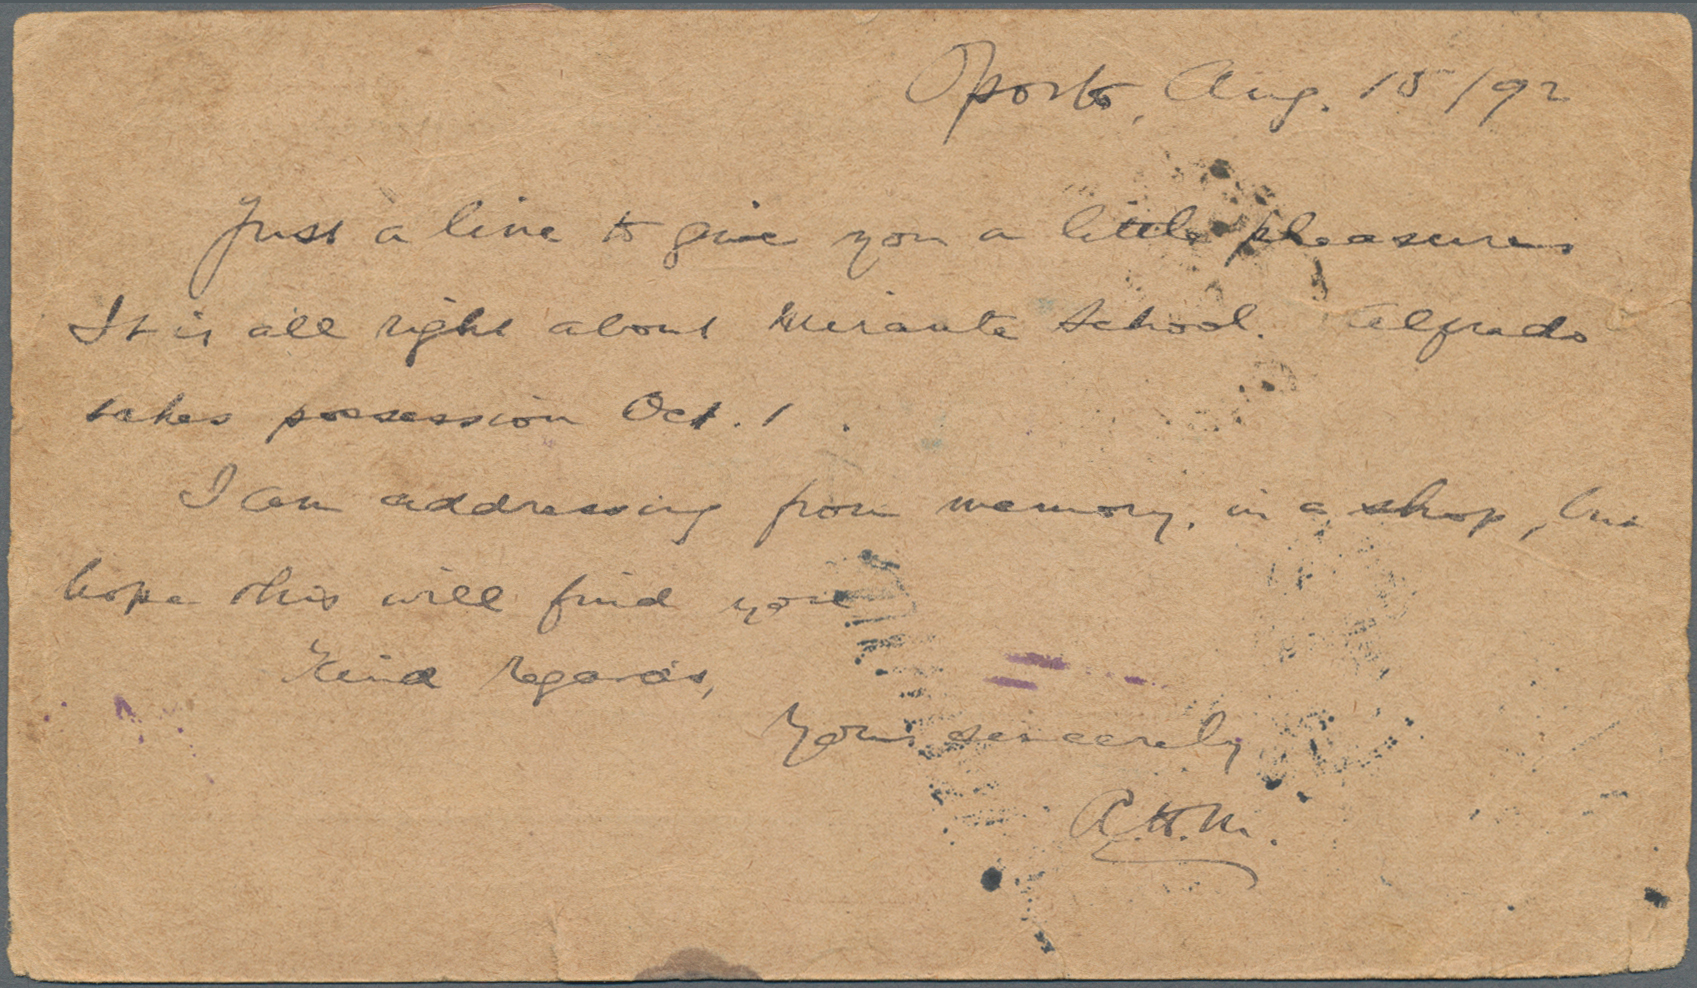 Oporto, Aug. 15/92
Just a line to give you a little pleasure.
It is all right about Mirante School. Alfredo
takes possession Oct. 1.
I am addressing from memory, in a shop, but
hope this will find you
Kind regards,
Yours sincerely
A.H.M.